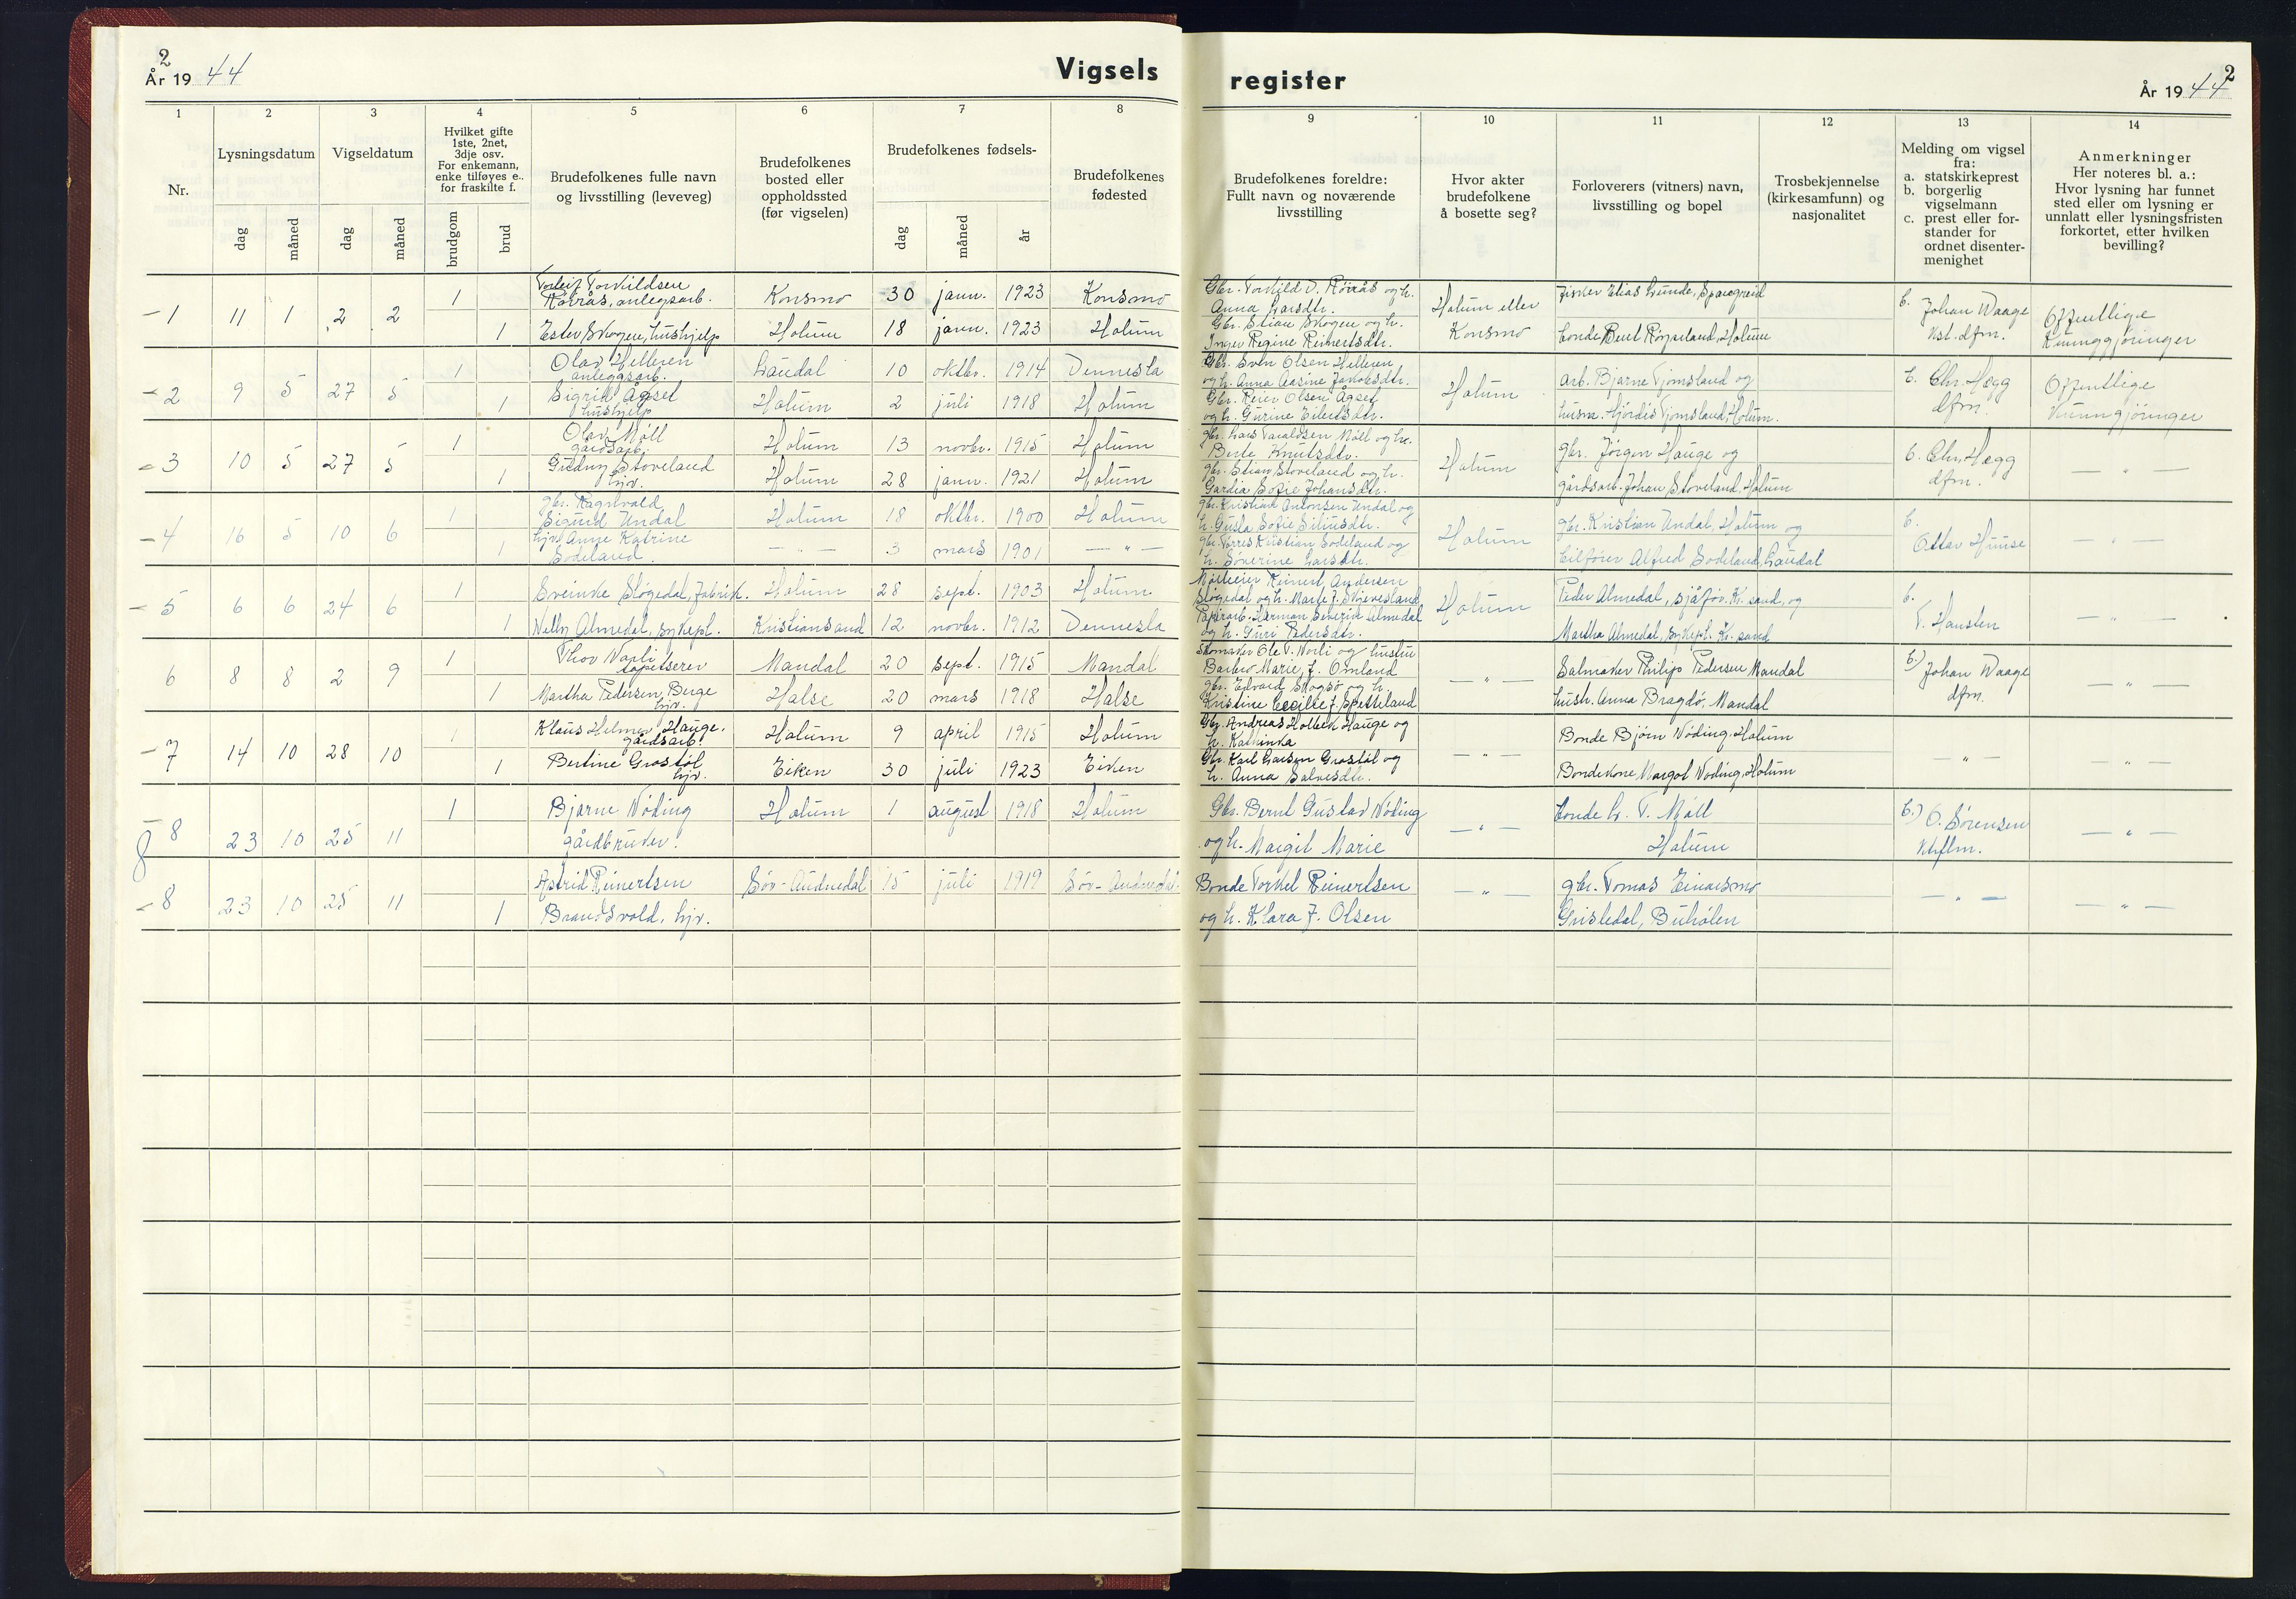 2
År 19 44
Vigsels
register
År 19 44
2
1 2 3 4 5 6 7 8 9 10 11 12 13 14
Nr.
Lysningsdatum
Vigseldatum
Hvilket gifte
1ste, 2net,
3dje osv.
For enkemann,
enke tilføyes e.,
for fraskilte f.
Brudefolkenes fulle navn
og livsstilling (leveveg)
Brudefolkenes
bosted eller
oppholdssted
(før vigselen)
Brudefolkenes fødsels-
Brudefolkenes
fødested
Brudefolkenes foreldre:
Fullt navn og noværende
livsstilling
Hvor akter
brudefolkene
å bosette seg?
Forloverers (vitners) navn,
livsstilling og bopel
Trosbekjennelse
(kirkesamfunn) og
nasjonalitet
Melding om vigsel
fra:
a. statskirkeprest
b. borgerlig
vigselmann
c. prest eller for-
stander for
ordnet disenter-
menighet
Anmerkninger
Her noteres bl. a.:
Hvor lysning har funnet
sted eller om lysning er
unnlatt eller lysningsfristen
forkortet, etter hvilken
bevilling?
dag måned dag måned brudgom brud dag måned år
1 11 1 2 2
1 Torleif Torkildsen
Røirås, anlegsarb. Konsmo 30 jann. 1923 Konsmo
1 Ester Skogen, hushjelp Holum 18 jann. 1923 Holum
Gbr. Torkild O. Røirås og h.
Anna Larsdtr.
Gbr. Stian Skogen og h.
Inger Regine Reinertsdtr.
Holum eller
Konsmo
Fisker Elias Lunde, Spangreid
bonde Bent Holum
b. Johan Waage
kst. dfm.
Offentlige
Kunngjøringer
2 9 5 27 5
1 Olav Helleren
anleggsarb. Laudal 10 oktbr. 1914 Vennesla
1 Sigrid Ågset
hushjelp Holum 2 juli 1918 Holum
Gbr. Sven Olsen Helleren
og h. Anna Aasine Jakobsdtr.
Gbr. Reier Olsen Ågset
og h. Gurine Eilertsdtr.
Holum
arb. Bjarne Tjomsland og
husm. Hjördis Tjomsland, Holum.
b. Chr. Hægg
dfm.
Offentlige
Kunngjøringer
3 10 5 27 5
1 Olav Møll
gårdsarb. Holum 13 novbr. 1915 Holum
1 Gudny Stoveland
hjv. Holum 28 jann. 1921 Holum
gbr. Lars Taraldsen Møll og h.
Berte Knutsdtr.
gbr. Stian Stoveland og h.
Gardia Sofie Johansdtr.
Holum
gbr. Jörgen Hauge og
gårdsarb. Johan Stoveland, Holum
b. Chr. Hægg
dfm.
— " —
4 16 5 10 6
1 gbr. Ragnvald
Sigurd Undal Holum 18 oktbr. 1900 Holum
1 hjv. Anne Katrine
Sodeland. — " — 3 mars 1901 — " —
gbr. Kristian Antonsen Undal og
h. Gusta Sofie Siliusdtr.
gbr. Torres Kristian Sodeland og
h. Søverine Larsdtr.
Holum
gbr. Kristian Undal, Holum og
bilfører Alfred Sodeland, Laudal
b.
Ottar Huuse
— " —
5 6 6 24 6
1 Sveinke Sløgedal, fabrik. Holum 28 sept. 1903 Holum
1 Nelly Almedal, sykepl. Kristiansand 12 novbr. 1912 Vennesla
Reinert Andersen
Sløgedal og h. Marte f. Skjevesland
Papirarb. Herman Severin Almedal
og h. Guri Pedersdtr.
Holum
Peder Almedal, sjåfør. Kr. sand, og
Martha Almedal, sykepl. Kr. sand
b.
T. Hansten
— " —
6 8 8 2 9
1 Thor Norli
tapetserer Mandal 20 sept. 1915 Mandal
1 Martha Pedersen, Berge
hjv. Halse 20 mars 1918 Halse
Skomaker Ole T. Norli og hustru
Barbro Marie, f. Omland
gbr. Edvard Skogsø og h.
Kristine Cecilie f. Spetteland
— " —
Salmaker Philip Pedersen Mandal
hustr. Anna Bragdø, Mandal
b.) Johan Waage
dfm.
— " —
7 14 10 28 10
1 Klaus Helmer Hauge.
gårdsarb. Holum 9 april 1915 Holum
1 Bertine Grostøl
hjv. Eiken 30 juli 1923 Eiken
Gbr. Andreas Holbek Hauge og
h. Kathinka
Gbr. Karl Larsen Grostöl og
h. Anna Salvesdtr.
— " —
Bonde Björn Nöding, Holum
Bondekone Margot Nöding, Holum
— " —
— " —
8
8 23 10 25 11
1 Bjarne Nöding
gårdbruker. Holum 1 august 1918 Holum
Gbr. Bernt Gustav Nöding
og h. Margit Marie
— " —
bonde L. T. Möll
Holum
b.) O. Sørensen
— " —
8 23 10 25 11
1 Astrid Reinertsen
Brandsvold, hjv. Sör-Audnedal 15 juli 1919 Sör-Audnedal.
Bonde Torkel Reinertsen
og h. Klara f. Olsen
— " —
gbr. Tomas Einarsmo
Grisledal, Buhölen
— " —
— " —